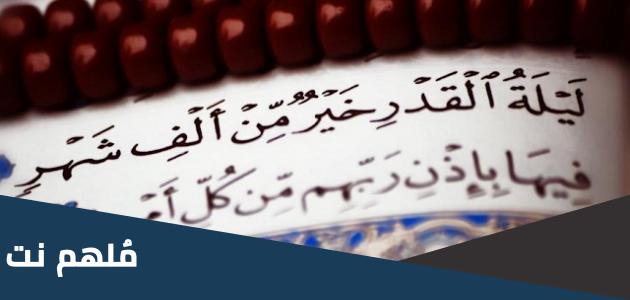 لَيْلَةُ ٱلْقَدْرِ خَيْرٌ مِّنْ أَلْفِ شَهْرٍ
فِيهَا بِإِذْنِ رَبِّهِم مِّن كُلِّ
مُلهم نت